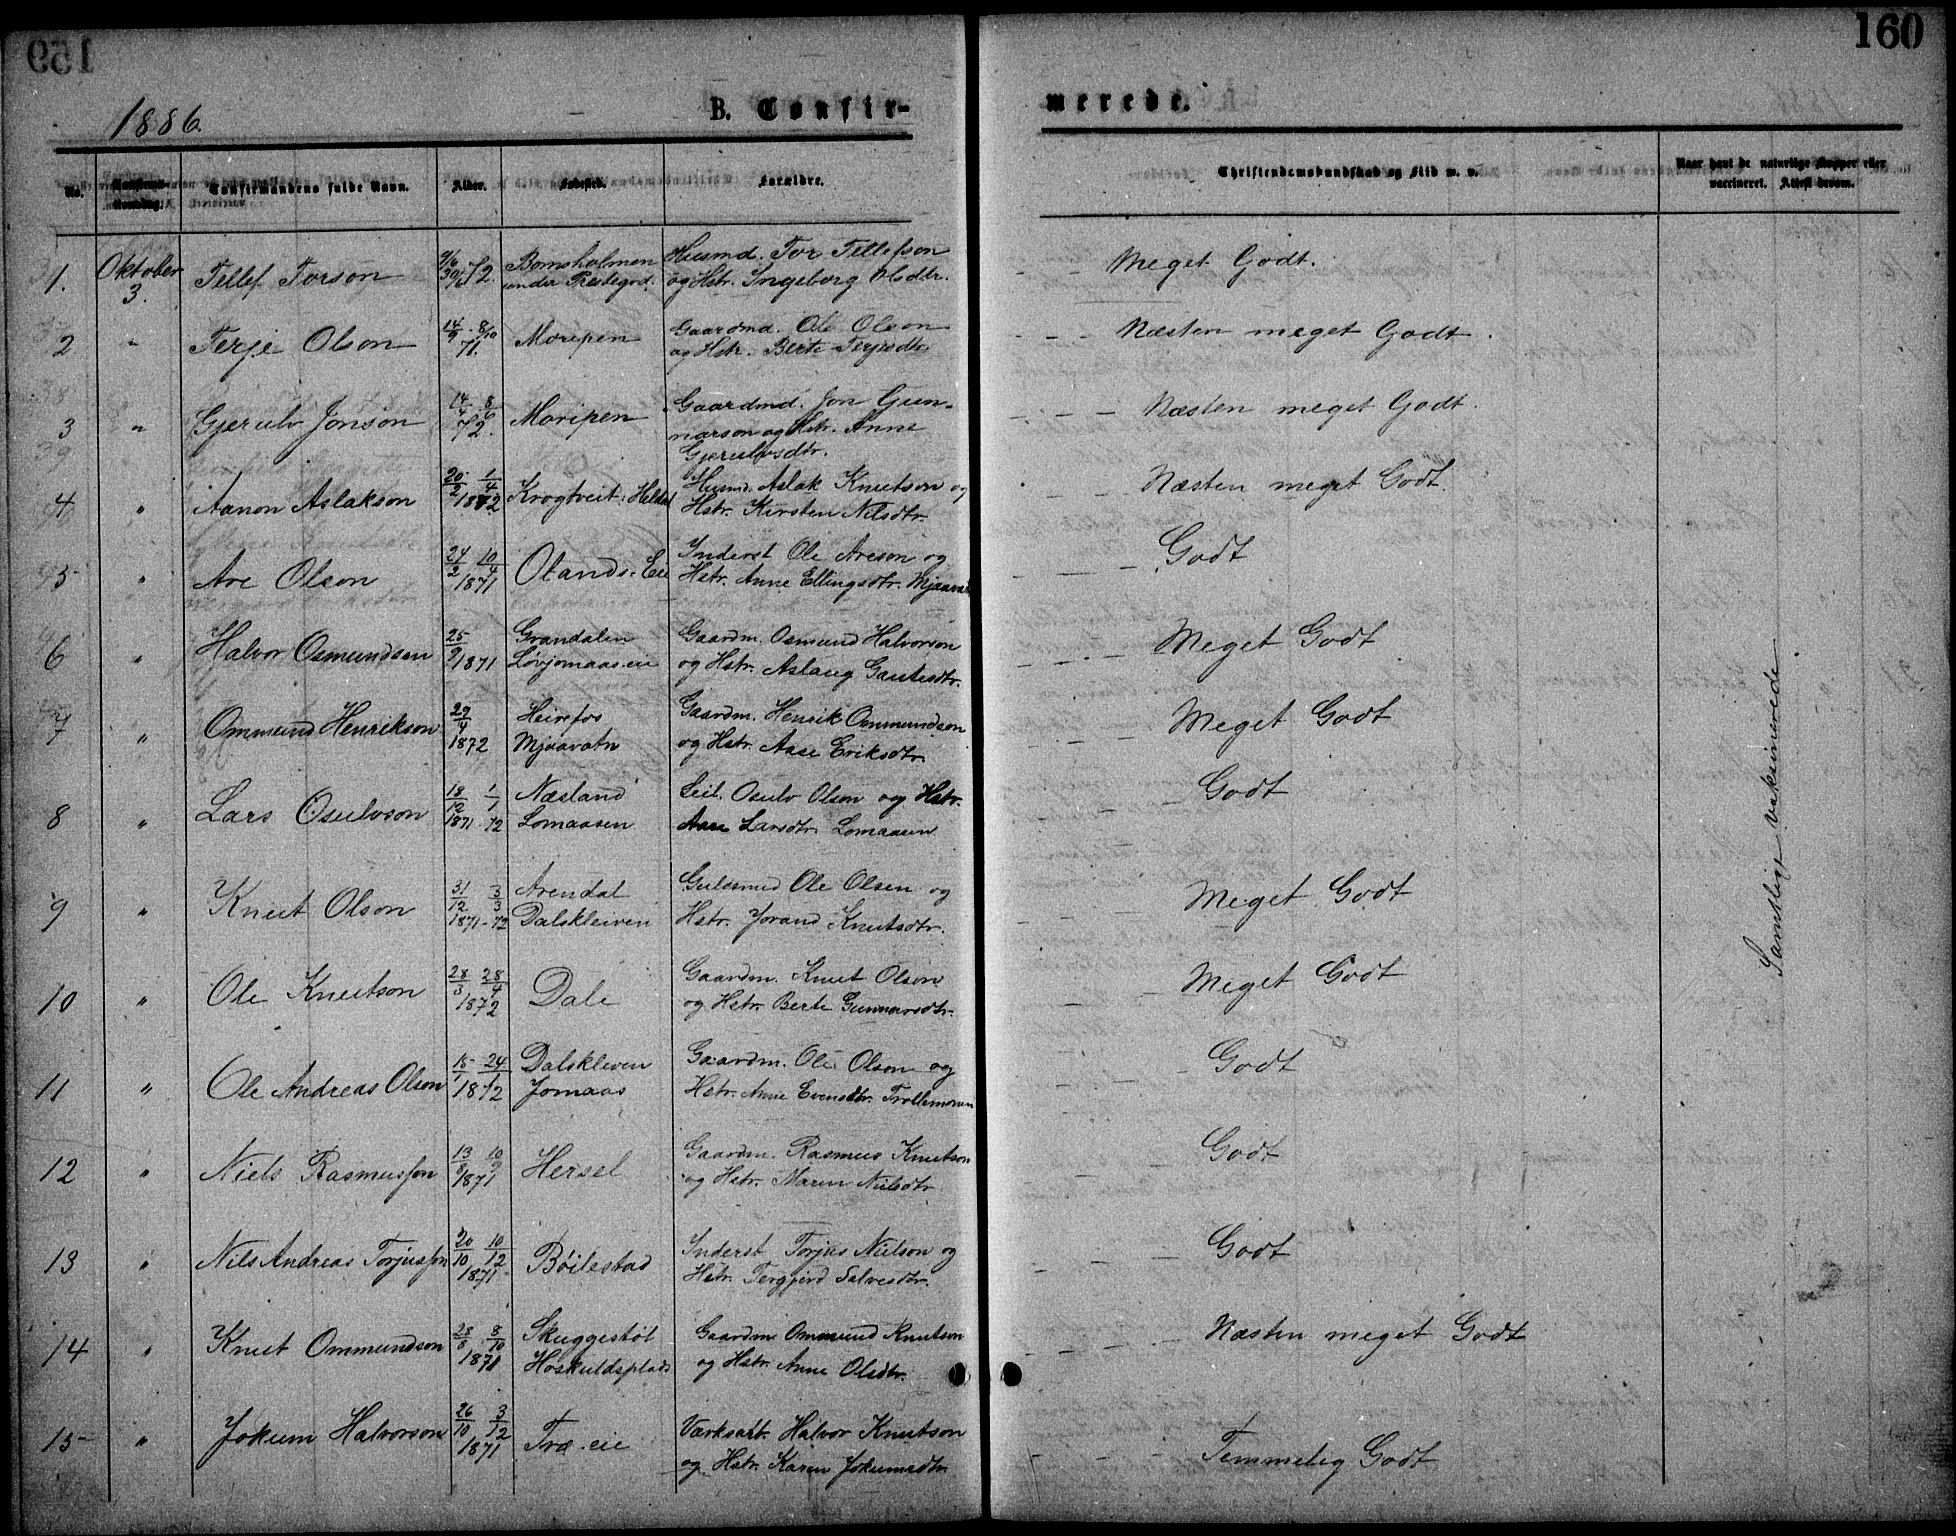 159
160
1886.
B. Confir-
merede.
No.
Confirmandens fulde Navn.
Alder.
Fødested.
Forældre.
Christendomskundskab og Flid m. v.
Naar havt de naturlige Kopper eller
vaccineret. Attest derom.
1. Oktober 3. Tellef Torson 30/6 72. Bomsholmen under Prestegrd. Husmd. Tor Tellefson
og Hstr. Ingeborg Olsdtr. Meget Godt.
2 " Terje Olson 14/9 - 8/10 71. Moripen Gaardmd. Ole Olson
og Hstr. Berte Terjesdtr. Næsten meget Godt.
3 " Gjerulv Jonson 14/4 8/6 72. Moripen Gaardmd. Jon Gun-
narson og Hstr. Anne
Gjerulvsdtr. Næsten meget Godt.
4 " Aanon Aslakson 20/2 1/4 1872 Krogtveit: Husmd. Aslak Knutson og
Hstr. Kirsten Nilsdtr. Næsten meget Godt.
5 " Are Olson 24/2 10/4 1871 Olands-Eie Inderst Ole Areson og
Hstr. Anne Ellingsdtr. Godt
6 " Halvor Osmundsen 25/9 1871 Grandalen Løvjomaas.eie Gaardm. Osmund Halvorson
og Hstr. Aslaug Gautesdtr. Meget Godt
7 " Ommund Henrikson 29/4 1872 Heirefos Mjaavatn Gaardm. Henrik Ommundson
og Hstr. Aase Eriksdtr. Meget Godt
8 " Lars Osulvson 18/12 1/1 1871-72 Næsland Lomaasen Leil. Osulv Olson og Hstr.
Aase Larsdtr. Lomaasen Godt
9 " Knut Olson 31/12 3/3 1871-72 Arendal Dalskleiven Guldsmed Ole Olsen og
Hstr. Jorand Knutsdtr. Meget Godt
10 " Ole Knutson 28/3 28/4 1872 Dale Gaardm. Knut Olson
og Hstr. Berte Gunnarsdtr. Meget Godt
11 " Ole Andreas Olson 15/1 24/1 1872 Dalskleven Jomaas Gaardm. Ole Olson og
Hstr. Anne Evensdtr. Godt
12 " Niels Rasmusson 13/8 10/9 1871 Hersel Gaardm. Rasmus Knutson
og Hstr. Maren Nielsdtr. Godt
13 " Nils Andreas Torjusson 20/10 10/12 1871 Bøilestad Inderst Torjus Nielson og
Hstr. Tergjerd Salvesdtr. Godt
14 " Knut Ommundson 28/8 8/10 1871 Skuggestøl Høskuldsplads Gaardm. Ommund Knutson
og Hstr. Anne Olsdtr. Næsten meget Godt
15 " Jokum Halvorson 26/10 3/12 1871 Træ.eie Værksarb. Halvor Knutson
og Hstr. Karen Jokumsdtr. Temmelig Godt
Samtlige vaksinerede